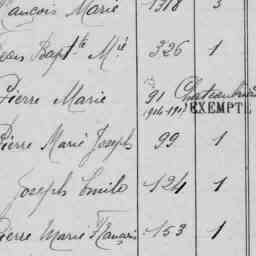 François Marie 1318 3
Jean Bapt.te M.ie 326 1
Pierre Marie 91 Chateaubriant
1914-191 EXEMPT
Pierre Marie Joseph 99 1
Joseph Emile 124 1
Pierre Marie François 153 1